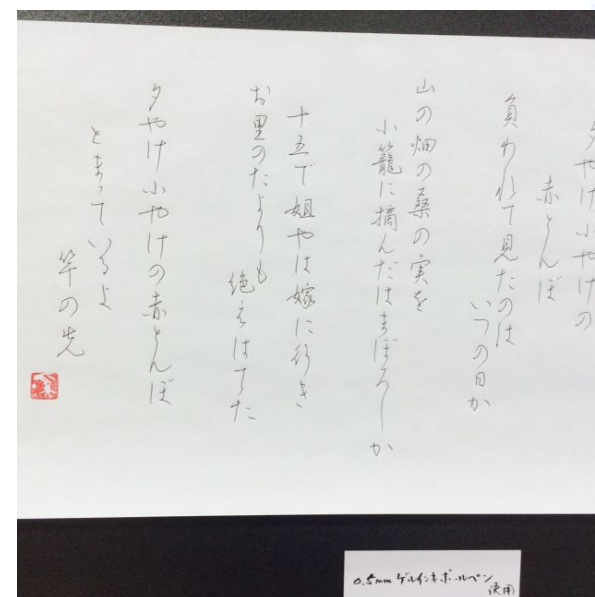 夕やけ小やけの
赤とんぼ
負われて見たのは
いつの日か
山の畑の桑の実を
小籠に摘んだはまぼろしか
十五で姐やは嫁に行き
お里のたよりも
絶えはてた
夕やけ小やけの赤とんぼ
とまっているよ
竿の先
0.5mm ゲルインキボールペン
使用